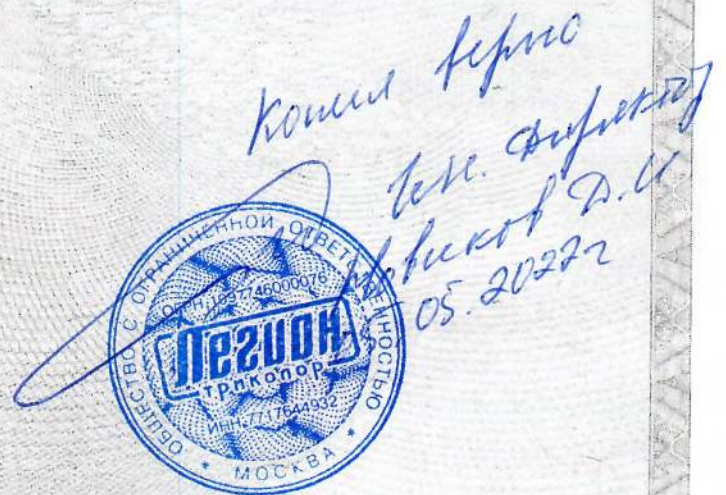 Копия верно
Ген. директор
Новиков Д.И
05.2022г
ОБЩЕСТВО С ОГРАНИЧЕННОЙ ОТВЕТСТВЕННОСТЬЮ
ОГРН 1097746000076
Легион
ТРПКОПОР
ИНН 7717644932
* МОСКВА *